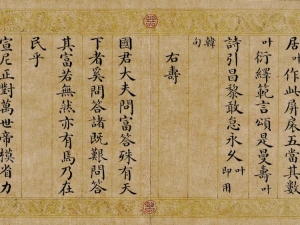 居叶作此屏庶五當其數
叶衍繹範言頌是曼壽叶
詩引昌黎敢怠永久叶即用
韓句
右壽
國君大夫問富答殊有天
下者奚問答諸既艱問答
其富若無然亦有焉乃在
民乎
宣尼正對萬世帝模省力